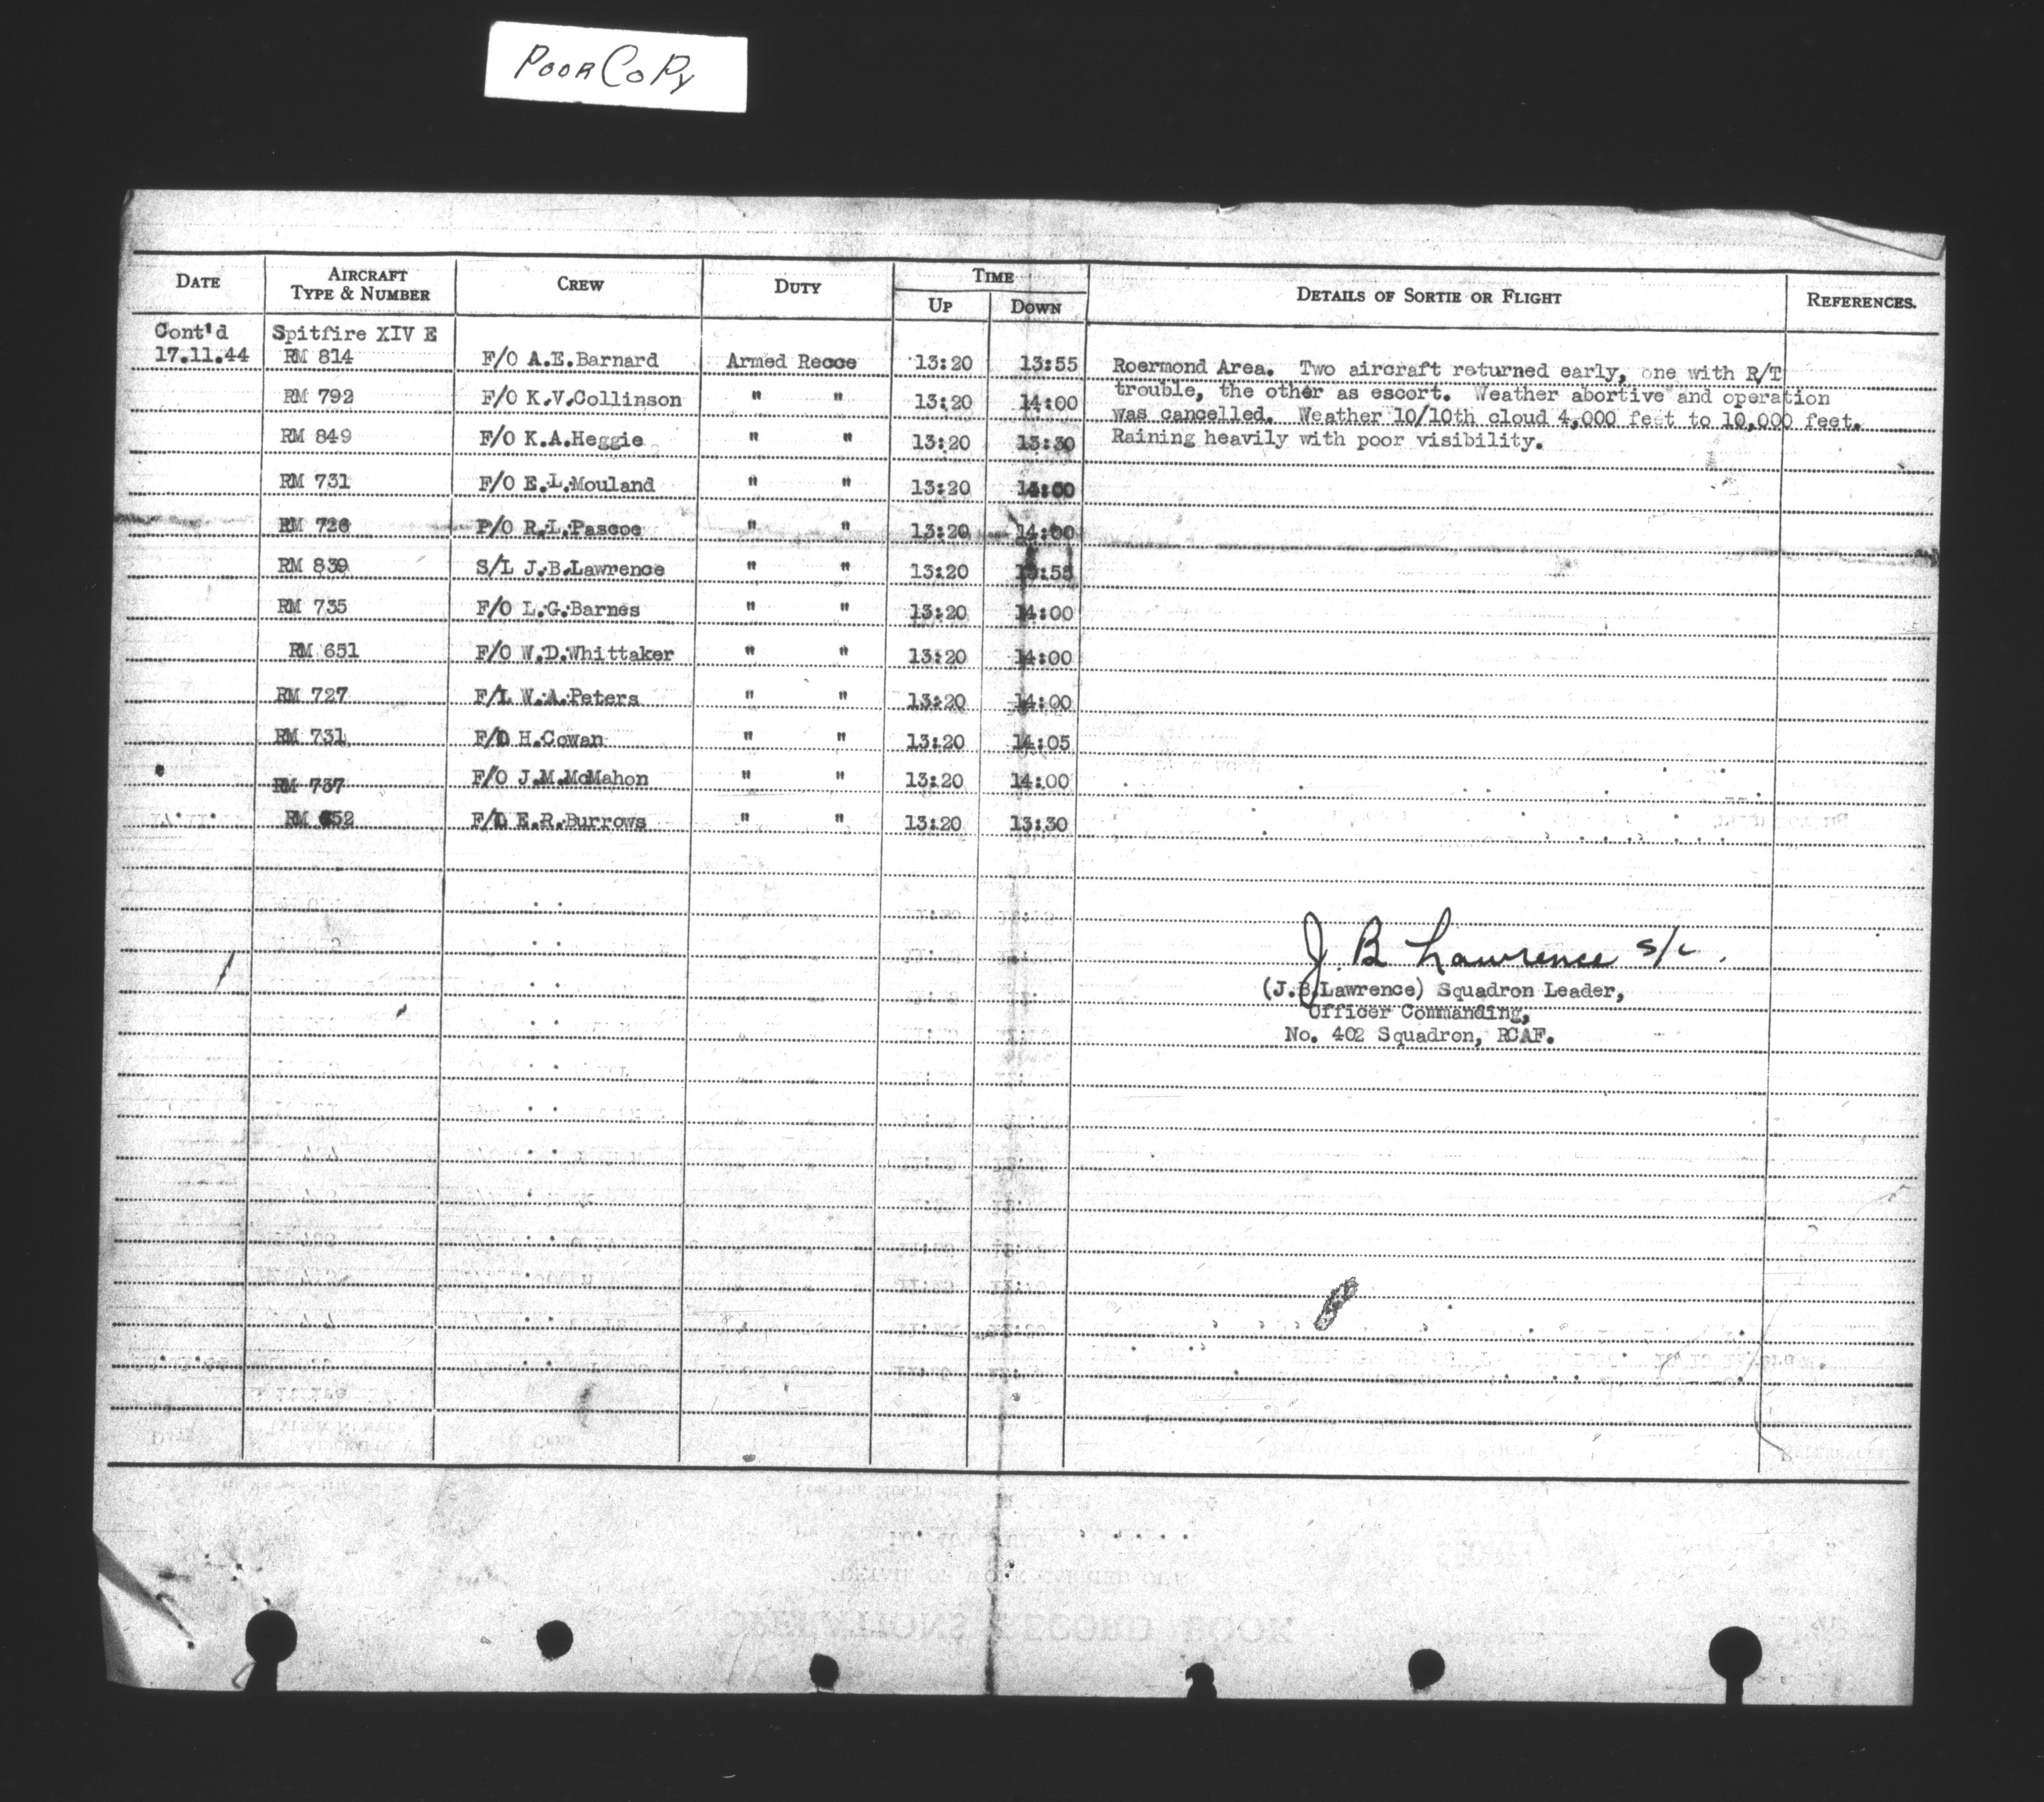 Poor Copy
DATE AIRCRAFT TYPE & NUMBER CREW DUTY TIME UP DOWN DETAILS OF SORTIE OR FLIGHT REFERENCES.
Cont'd Spitfire XIV E
17.11.44 RM 814 F/O A.E.Barnard Armed Recce 13:20 13:55 Roermond Area. Two aircraft returned early, one with R/T
trouble, the other as escort. Weather abortive and operation
RM 792 F/O K.V.Collinson " " 13:20 14:00
was cancelled. Weather 10/10th cloud 4,000 feet to 10,000 feet.
RM 849 F/O K.A.Heggie " " 13:20 13:30 Raining heavily with poor visibility.
RM 731 F/O E.L.Mouland " " 13:20 14:00
RM 726 P/O R.L.Pascoe " " 13:20 14:00
RM 839 S/L J.B.Lawrence " " 13:20 13:55
RM 735 F/O L.G.Barnes " " 13:20 14:00
RM 651 F/O W.D.Whittaker " " 13:20 14:00
RM 727 F/L W.A.Peters " " 13:20 14:00
RM 731 H.Cowan " " 13:20 14:05
RM 737 F/O J.M.McMahon " " 13:20 14:00
RM 652 E.R.Burrows " " 13:20 13:30
J. B Lawrence S/L.
(J.B.Lawrence) Squadron Leader,
Officer Commanding,
No. 402 Squadron, RCAF.